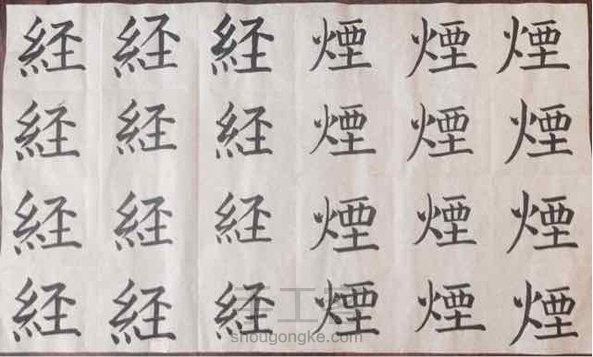 経 経 経 煙 煙 煙
経 経 経 煙 煙 煙
経 経 経 煙 煙 煙
経 経 経 煙 煙 煙
手工客
shougongke.com